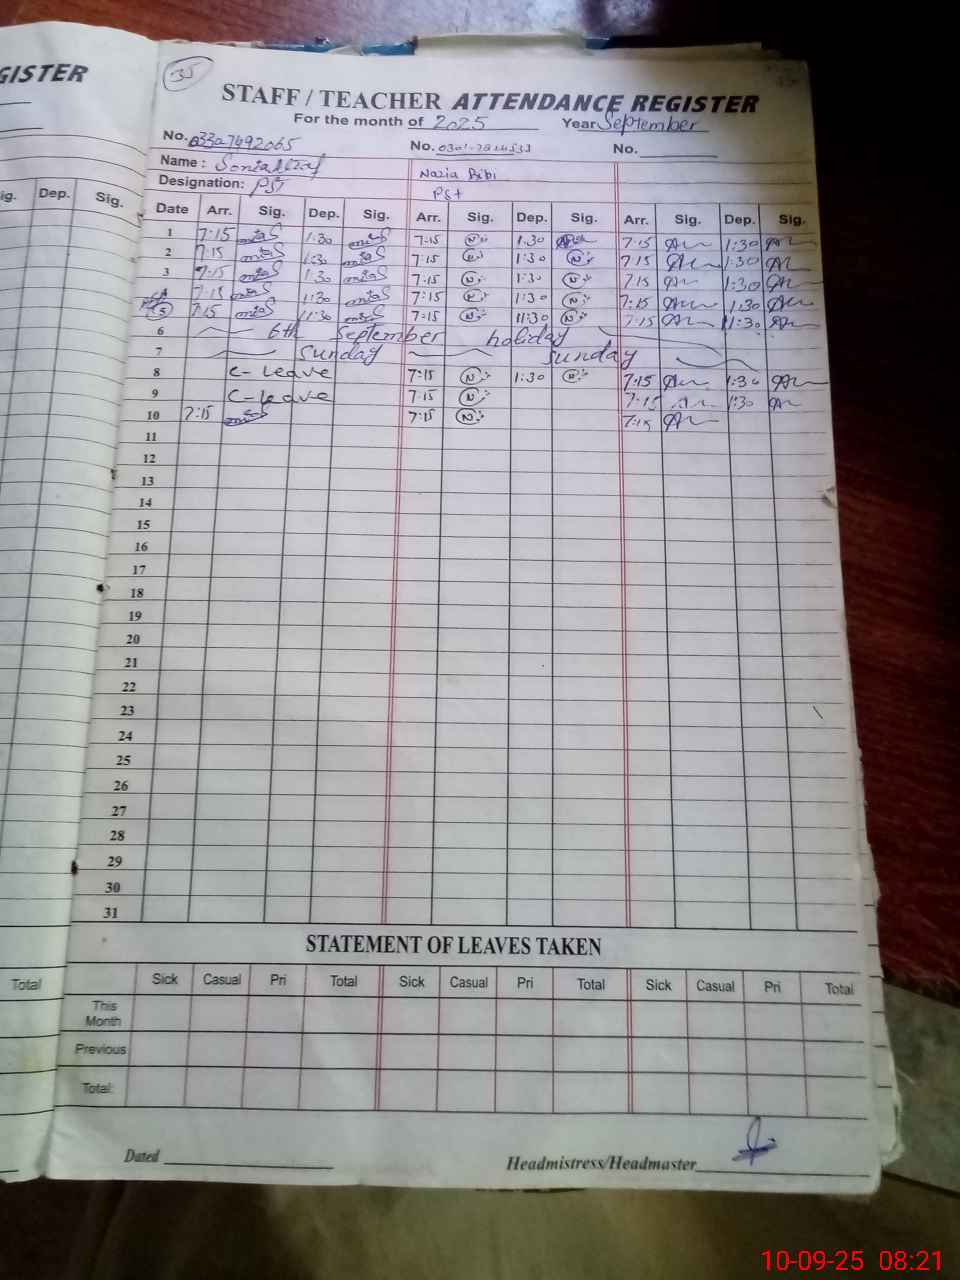 GISTER
35
STAFF / TEACHER ATTENDANCE REGISTER
For the month of 2025 Year September
No. 03327492065 No. No.
Name : Sonia Nazia Bibi
Designation: PST PST
ig. Dep. Sig.
Date Arr. Sig. Dep. Sig. Arr. Sig. Dep. Sig. Arr. Sig. Dep. Sig.
1 7:15 1:30 7:15 N 1:30 7:15 1:30
2 7:15 1:30 7:15 N 1:30 N 7:15 1:30
3 7:15 1:30 7:15 N 1:30 N 7:15 1:30
4 7:15 1:30 7:15 N 1:30 N 7:15 1:30
5 7:15 11:30 7:15 N 11:30 N 7:15 11:30
6 6th September holiday
7 Sunday Sunday
8 C- Leave 7:15 N 1:30 N 7:15 1:30
9 C- Leave 7:15 N 7:15 1:30
10 7:15 7:15 N 7:15
11
12
13
14
15
16
17
18
19
20
21
22
23
24
25
26
27
28
29
30
31
STATEMENT OF LEAVES TAKEN
Total Sick Casual Pri Total Sick Casual Pri Total Sick Casual Pri Total
This Month
Previous
Total:
Dated Headmistress/Headmaster
10-09-25 08:21